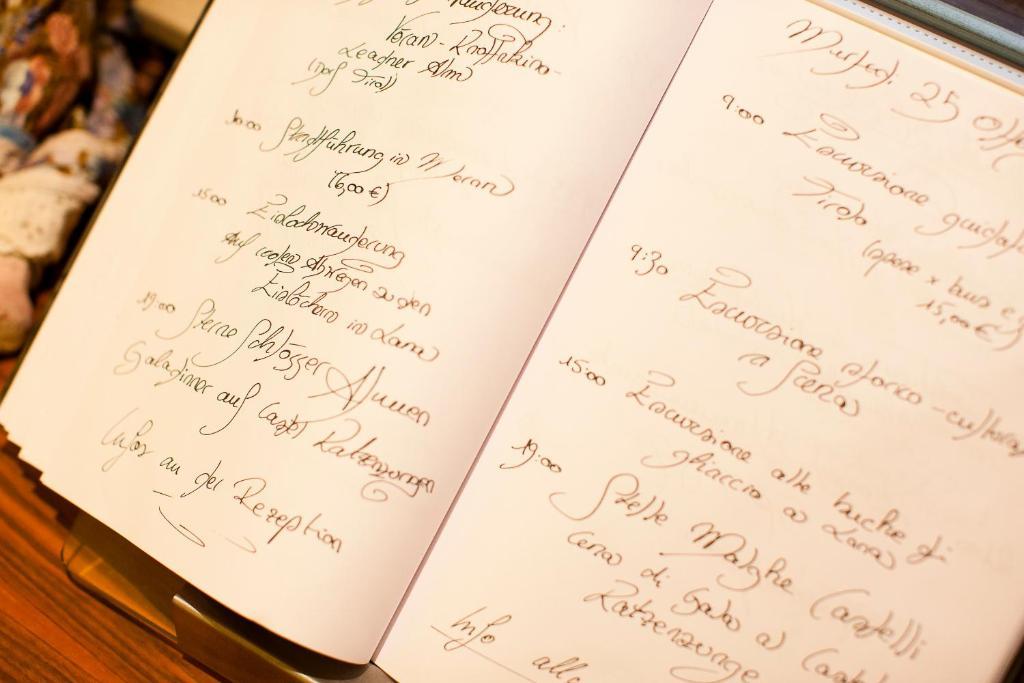 Vöran-
Leadner Alm
(nach Tirol)
10:00 Stadtführung in Meran
(6,00 €)
15:00 Eislochwanderung
Auf coolen Abwegen zu den
Eislöchern in Lana
19:00 Sterne Schlösser Almen
Galadinner auf Castel Katzenzungen
Infos an der Rezeption
25
9:00 Escursione guidata
Tirolo (spese x bus e
15,00€)
9:30 Escursione storico-cultural
a Scena
15:00 Escursione alle buche di
ghiaccio a Lana
19:00 Stelle Malghe Castelli
Cena di Gala a
Katzenzungen
Info alla